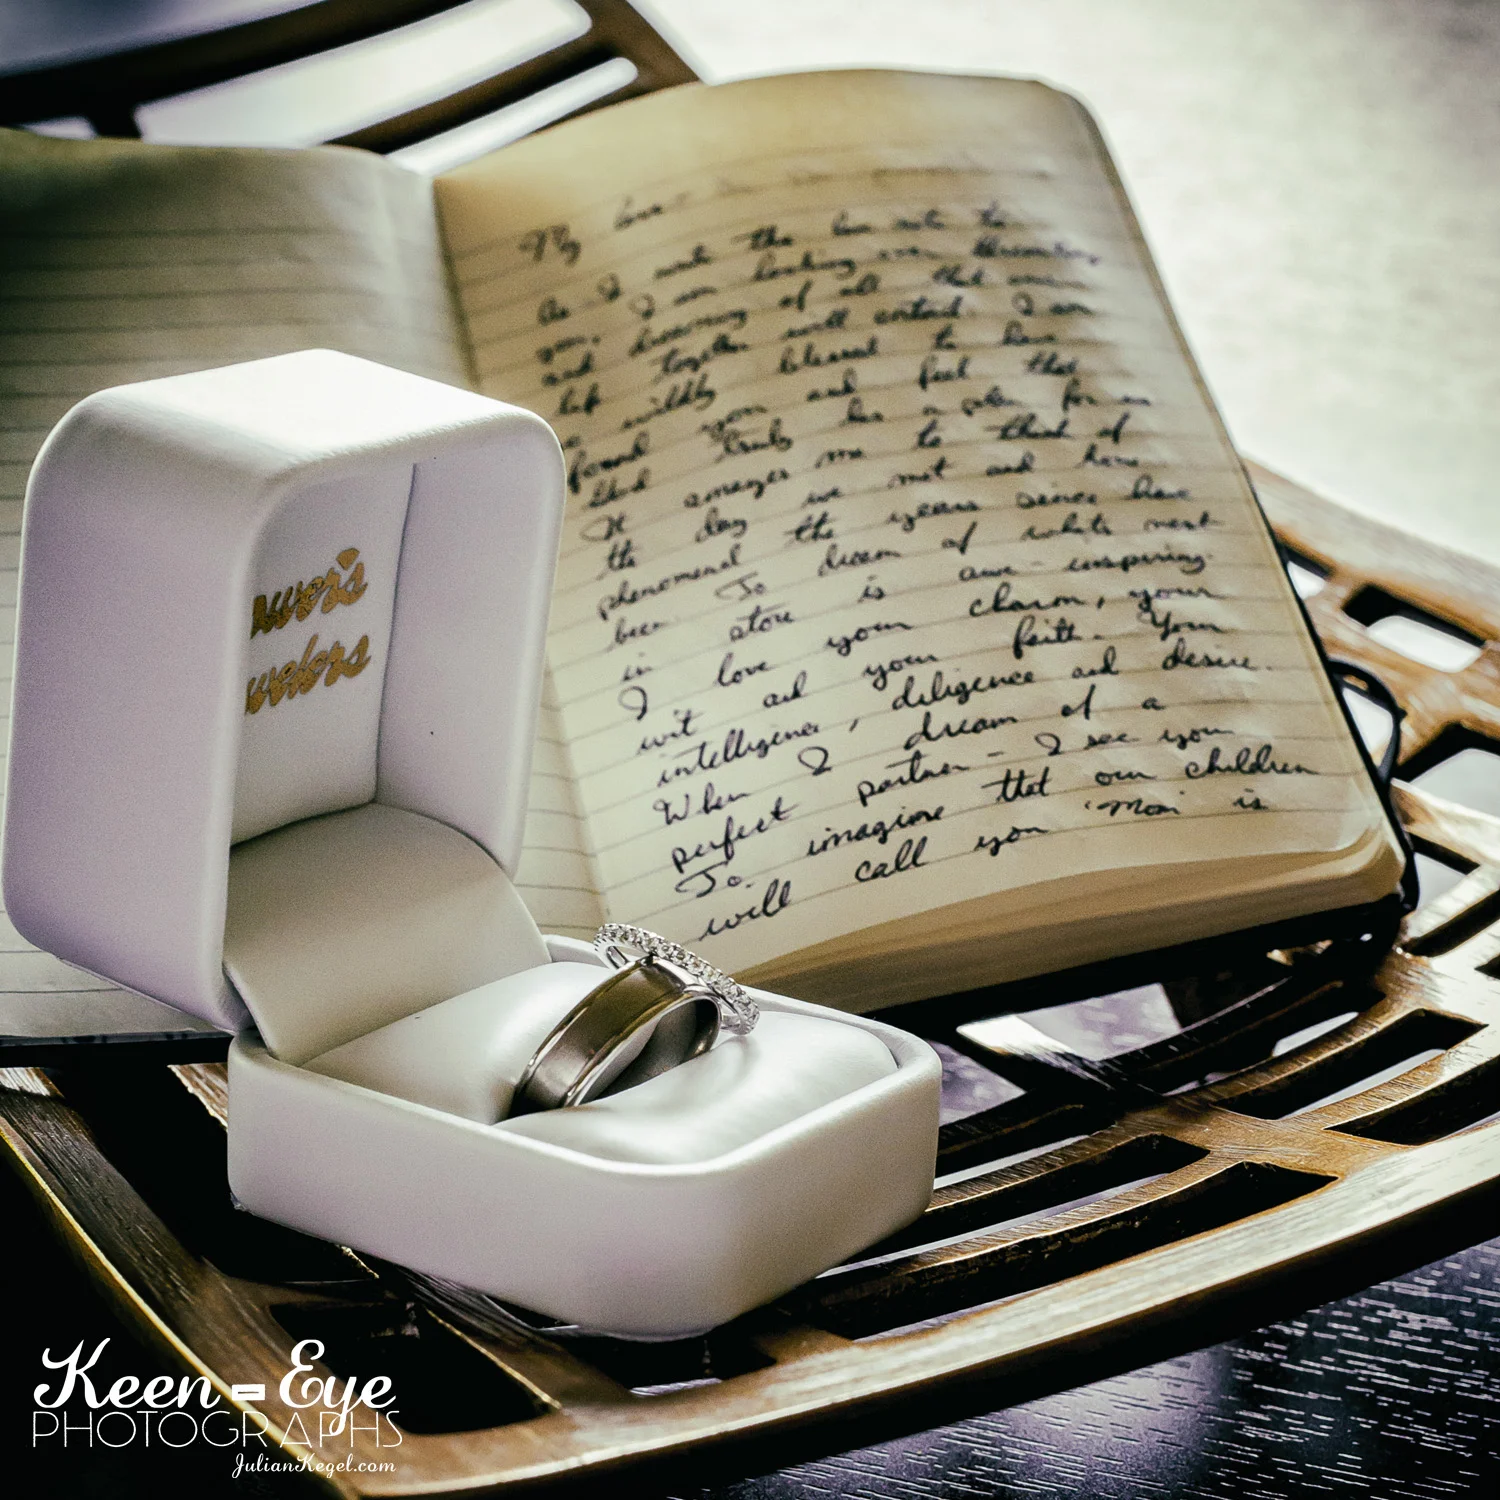 My love
As I write the love note to
you, I am looking over
and dreaming of all that our
life together will entail. I am
so wildly blessed to have
found you and feel that
God truly has a plan for us
It amazes me to think of
the day we met and how
phenomenal the years since have
been. To dream of whats next
in store is awe-inspiring.
I love your charm, your
wit and your faith. Your
intelligence, diligence and desire.
When I dream of a
perfect partner - I see you
To imagine that our children
will call you 'Mom' is
Keen-Eye
PHOTOGRAPHS
JulianKegel.com